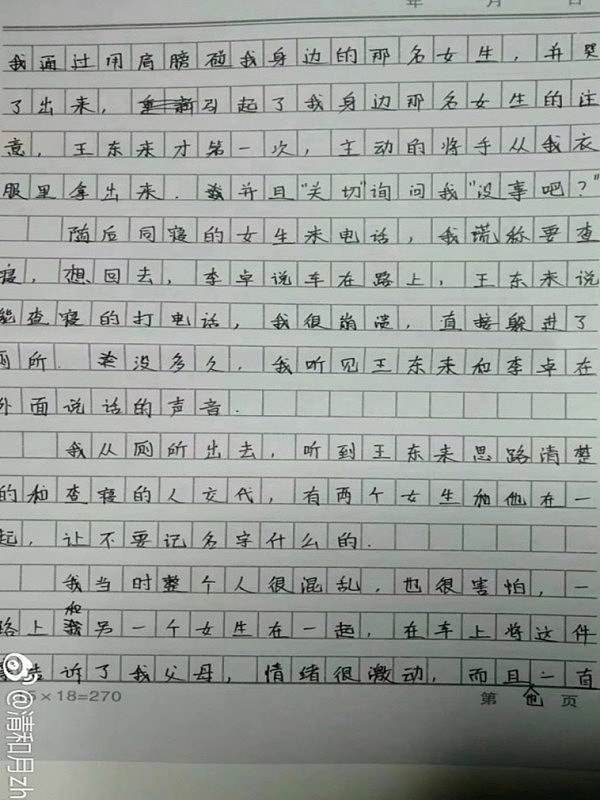 年 月 日
我通过用肩膀碰我身边的那名女生，并哭
了出来，引起了我身边那名女生的注
意，王东来才第一次，主动的将手从我衣
服里拿出来．并且“关切”询问我“没事吧？”
随后同寝的女生来电话，我谎称要查
寝，想回去，李卓说车在路上，王东来说
能查寝的打电话，我很崩溃，直接躲进了
厕所．没多久，我听见王东来和李卓在
外面说话的声音．
我从厕所出去，听到王东来思路清楚
的和查寝的人交代，有两个女生和他在一
起，让不要记名字什么的．
我当时整个人很混乱，也很害怕，一
路上和另一个女生在一起，在车上将这件
告诉了我父母，情绪很激动，而且他一直
5×18=270 第 页
@清和月zh